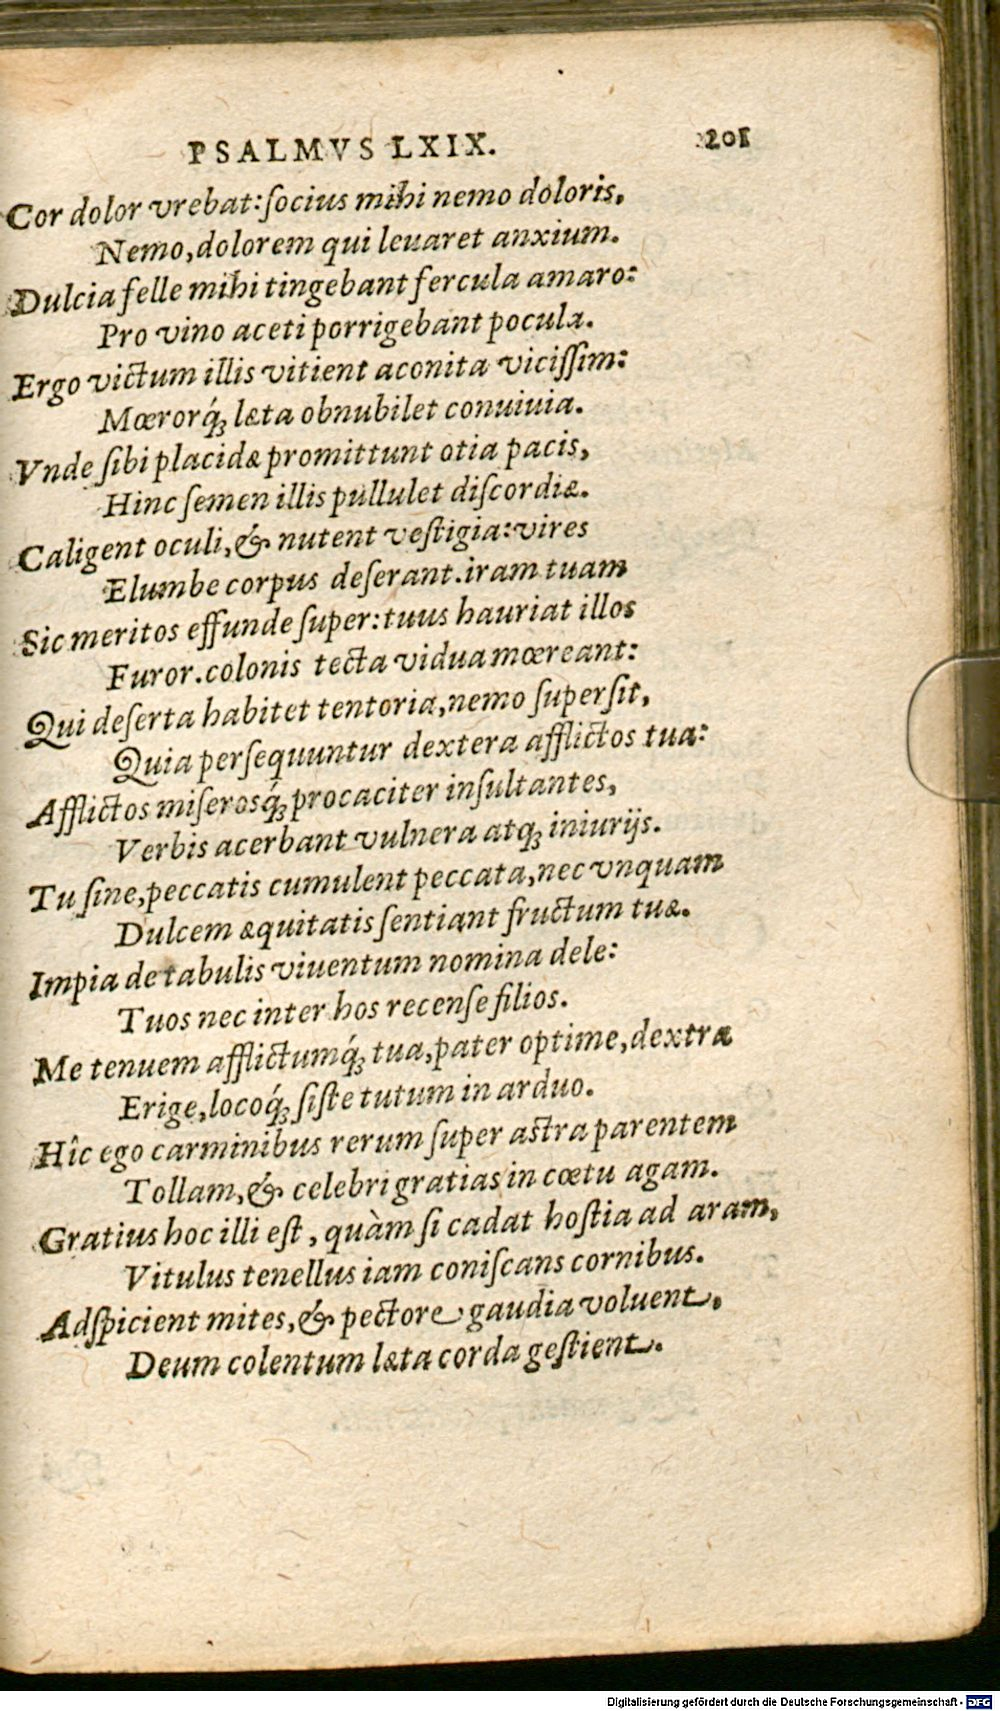 PSALMVS LXIX. 201
Cor dolor vrebat: ſocius mihi nemo doloris,
Nemo, dolorem qui leuaret anxium.
Dulcia felle mihi tingebant fercula amaro:
Pro vino aceti porrigebant pocula.
Ergo victum illis vitient aconita viciſſim:
Mœrorq́ꝫ læta obnubilet conuiuia.
Vnde ſibi placidæ promittunt otia pacis,
Hinc ſemen illis pullulet diſcordiæ.
Caligent oculi, & nutent veſtigia: vires
Elumbe corpus deſerant. iram tuam
Sic meritos effunde ſuper: tuus hauriat illos
Furor. colonis tecta vidua mœreant:
Qui deſerta habitet tentoria, nemo ſuperſit,
Quia perſequuntur dextera afflictos tua:
Afflictos miſerosq́ꝫ procaciter inſultantes,
Verbis acerbant vulnera atqꝫ iniurijs.
Tu ſine, peccatis cumulent peccata, nec vnquam
Dulcem æquitatis ſentiant fructum tuæ.
Impia de tabulis viuentum nomina dele:
Tuos nec inter hos recenſe filios.
Me tenuem afflictumq́ꝫ tua, pater optime, dextra
Erige, locoq́ꝫ ſiſte tutum in arduo.
Hîc ego carminibus rerum ſuper aſtra parentem
Tollam, & celebri gratias in cœtu agam.
Gratius hoc illi eſt, quàm ſi cadat hoſtia ad aram,
Vitulus tenellus iam coniſcans cornibus.
Adſpicient mites, & pectore gaudia voluent,
Deum colentum læta corda geſtient.
Digitalisierung gefördert durch die Deutsche Forschungsgemeinschaft - DFG